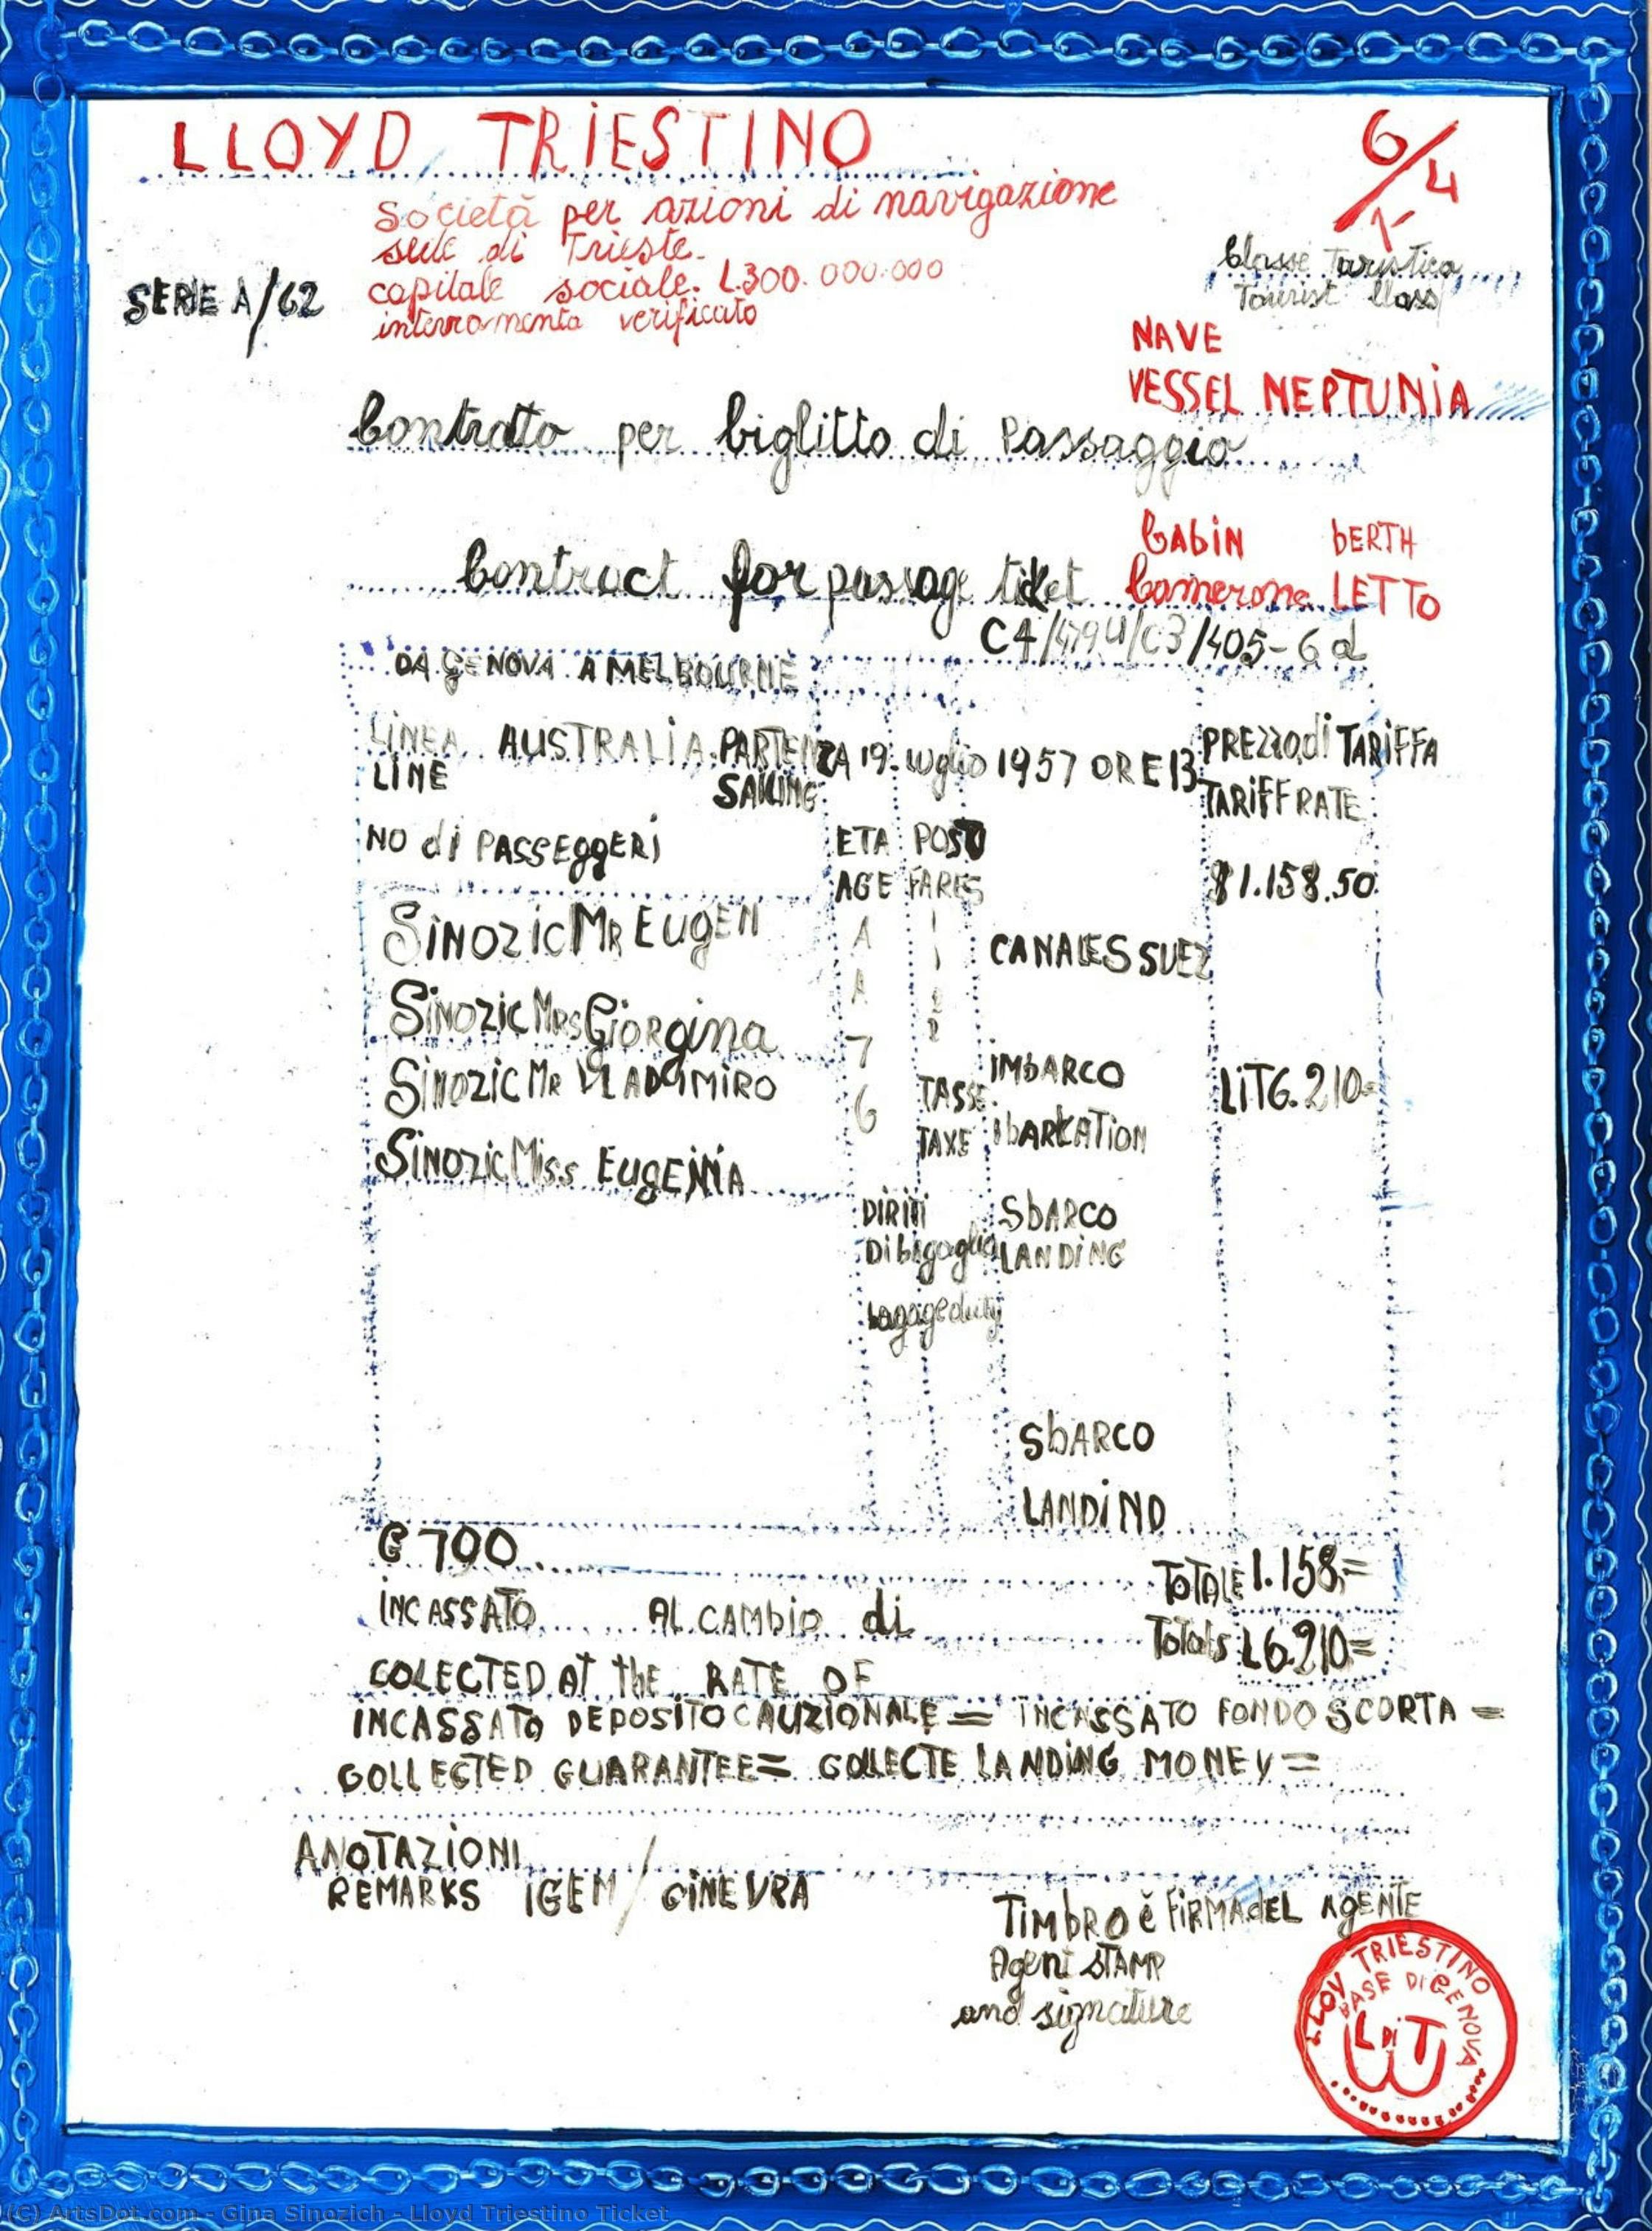 LLOYD TRIESTINO
6/4
1-
Società per azioni di navigazione
sede di Trieste-
capitale sociale. L.300.000.000
verificato
SERIE A/62
Tourist Class
NAVE
VESSEL NEPTUNIA
Contratto per biglitto di Passaggio
CAbiN bERTH
Contract for passage ticket Camerone LETTO
C4/479U/C3/405-6d
DA GENOVA A MELBOURNE
LINEA AUSTRALIA PARTENZA 19 luglio 1957 ORE 13 PREZZO di TARIFFA
LINE SAILING TARIFF RATE
NO di PASSEGGERI ETA POSTO
AGE FARES $1.158.50
SINOZIC MR EUGEN A 1
CANALE S SUEZ
SINOZIC MRS Giorgina A 1
7 2
SINOZIC MR VLADIMIRO 6 2
TASSE IMbARCO LiT6.210=
TAXE
SINOZIC Miss EUGENIA
DIRITI SbARCO
Di bagaglio LANDING
bagage duty
SbARCO
LANDIND
€ 700 TOTALE 1.158,=
INCASSATO AL CAMbIO di Totals L6.210=
COLECTED AT the RATE OF
INCASSATO DEPOSITO CAUZIONALE = INCASSATO FONDO SCORTA =
COLLECTED GUARANTEE= COLLECTE LANDING MONEY =
ANOTAZIONI
REMARKS IGEM / GINEVRA
TIMbRO è FIRMA dEL AgENTE
Agent STAMP
and signature
LLOY TRIESTINO
BASE DI GENOVA
L Di T
(C) ArtsDot.com - Gina Sinozich - Lloyd Triestino Ticket